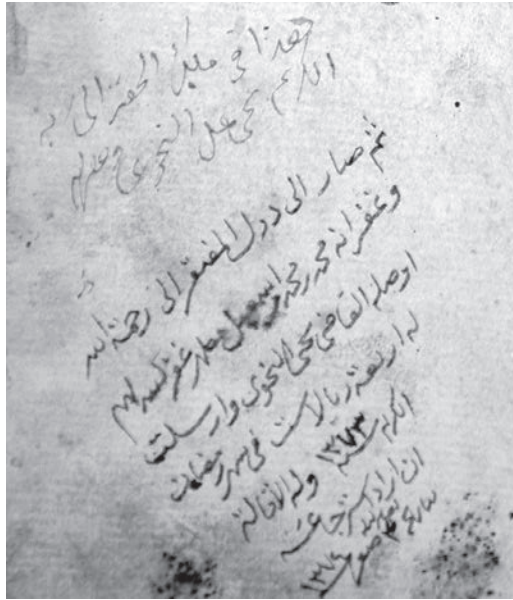 هذا في ملك الحقير إلى ربه
الكريم يحيى علي النحوي
ثم صار إلى ملك المفتقر إلى رحمة الله
وغفرانه محمد بن محمد بن إسماعيل غفر الله لهم
اوصله القاضي يحيى النحوي وارسلت
له اربعة ريالات في شهر رمضان
الكريم سنة ١٣٧٣ وله الاقالة
ان اراد استرجاعه
صفر ١٣٧٤